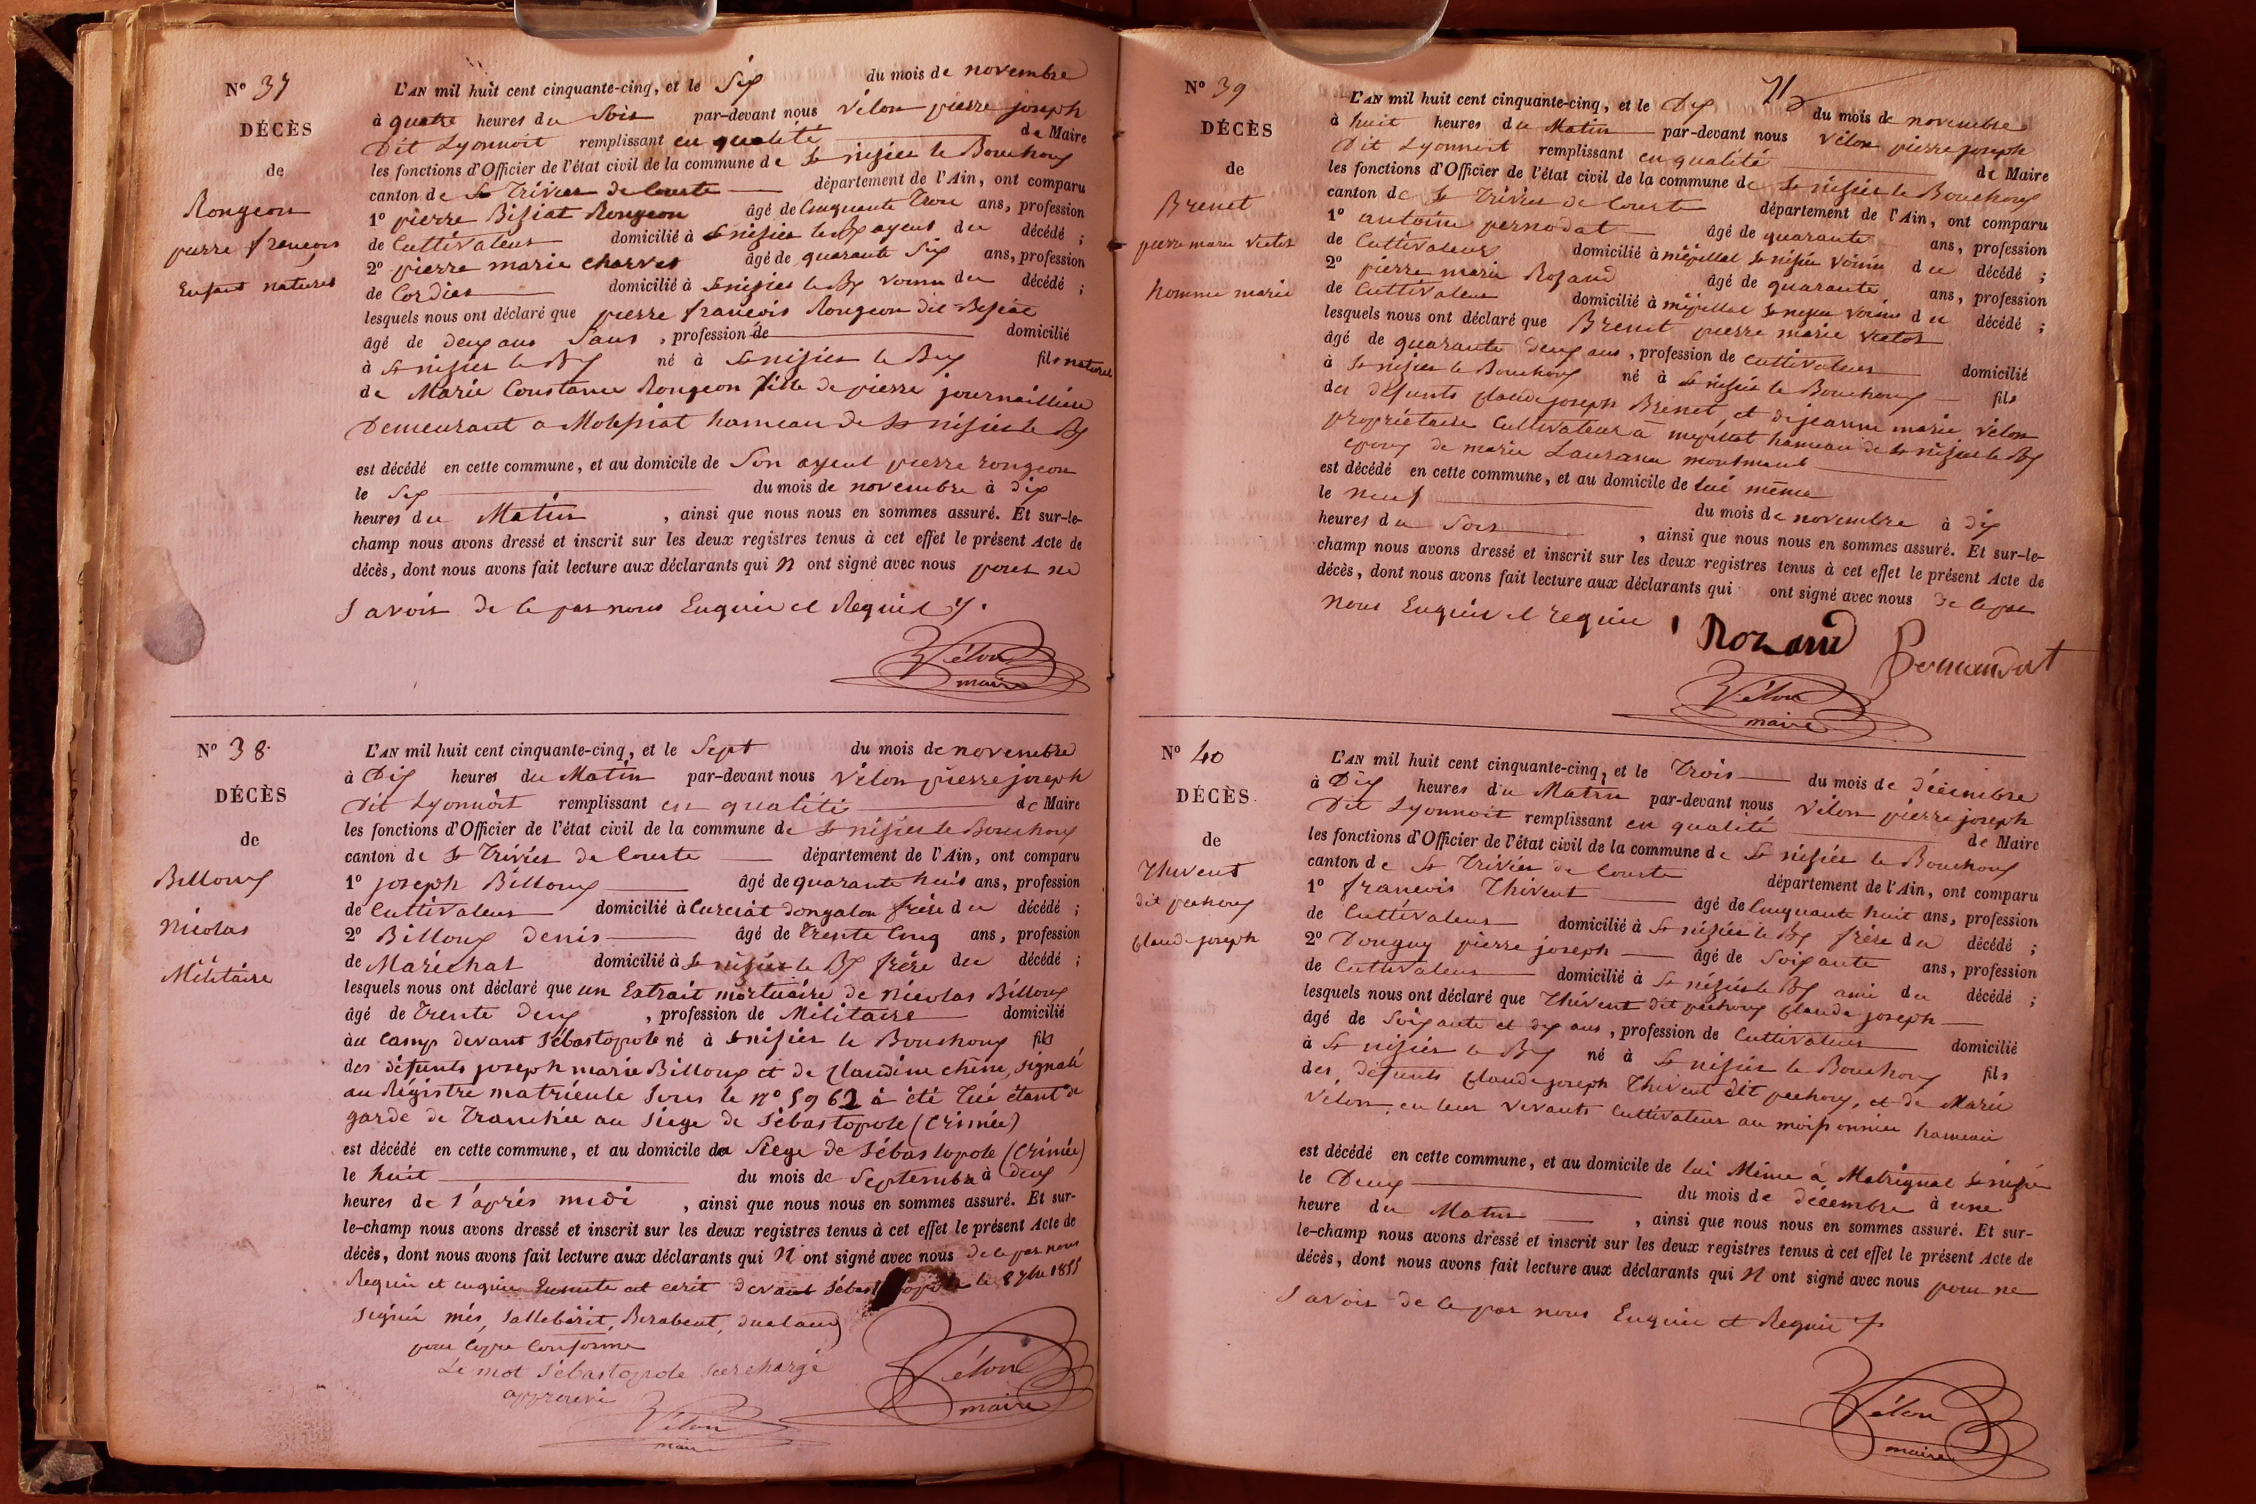 N° 37
DÉCÈS
de
Rongeon
pierre françois
Enfant naturel
L'AN mil huit cent cinquante-cinq, et le Six du mois de novembre
à quatre heures du Soir par-devant nous Vélon pierre joseph
Dit Lyonnoit remplissant en qualité de Maire
les fonctions d'Officier de l'état civil de la commune de St nisier le Bouchoux
canton de St Trivier de Courte département de l'Ain, ont comparu
1° pierre Bisiat Rongeon âgé de Cinquante Trois ans, profession
de Cultivateur domicilié à St nisier le Bx ayeul du décédé ;
2° pierre marie Charvet âgé de quarante Six ans, profession
de Cordier domicilié à St nisier le Bx voisin du décédé ;
lesquels nous ont déclaré que pierre françois Rongeon dit Bisiat
âgé de deux ans Sans , profession de domicilié
à St nisier le Bx né à St nisier le Bx fils naturel
de Marie Constance Rongeon fille de pierre journaillière
Demeurant a Molssiat hameau de St nisier le Bx
est décédé en cette commune, et au domicile de Son ayeul pierre rongeon
le Six du mois de novembre à dix
heures du Matin , ainsi que nous nous en sommes assuré. Et sur-le-
champ nous avons dressé et inscrit sur les deux registres tenus à cet effet le présent Acte de
décès, dont nous avons fait lecture aux déclarants qui N ont signé avec nous pour ne
Savoir de ce par nous Enquis et Requis
Vélon
maire
N° 38
DÉCÈS
de
Billoux
Nicolas
Militaire
L'AN mil huit cent cinquante-cinq, et le Sept du mois de novembre
à Dix heures du Matin par-devant nous Vélon pierre joseph
Dit Lyonnoit remplissant en qualité de Maire
les fonctions d'Officier de l'état civil de la commune de St nisier le Bouchoux
canton de St Trivier de Courte département de l'Ain, ont comparu
1° joseph Billoux âgé de quarante huit ans, profession
de Cultivateur domicilié à Curciat dongalon frère du décédé ;
2° Billoux denis âgé de Trente Cinq ans, profession
de Maréchal domicilié à St nisier le Bx frère du décédé ;
lesquels nous ont déclaré que un Extrait mortuaire de Nicolas Billoux
âgé de Trente deux , profession de Militaire domicilié
au Camp devant Sébastopole né à St nisier le Bouchoux fils
des défunts joseph marie Billoux et de Claudine Chêne, signalé
au Régistre matricule Sous le n° 5962 a été Tué étant de
garde de Tranchée au Siège de Sébastopole (Crimée)
est décédé en cette commune, et au domicile du Siège de Sébastopole (Crimée)
le huit du mois de Septembre à deux
heures de l'après midi , ainsi que nous nous en sommes assuré. Et sur-
le-champ nous avons dressé et inscrit sur les deux registres tenus à cet effet le présent Acte de
décès, dont nous avons fait lecture aux déclarants qui N ont signé avec nous de ce par nous
Requis et enquis Ensuite est écrit devant Sébastopole le 8 7bre 1855
signé més, Sallebérit, Barabent,
pour Copie Conforme
Le mot Sébastopole Surchargé
approuvé
Vélon
maire
Vélon
maire
N° 39
DÉCÈS
de
Brenet
pierre marie Victor
homme marié
L'AN mil huit cent cinquante-cinq, et le Dix du mois de novembre
à huit heures du Matin par-devant nous Vélon pierre joseph
Dit Lyonnoit remplissant en qualité de Maire
les fonctions d'Officier de l'état civil de la commune de St nisier le Bouchoux
canton de St Trivier de Courte département de l'Ain, ont comparu
1° antoine pernodat âgé de quarante ans, profession
de Cultivateur domicilié à mépillat St nisier voisin du décédé ;
2° pierre marie Rozand âgé de quarante ans, profession
de Cultivateur domicilié à mépillat St nisier voisin du décédé ;
lesquels nous ont déclaré que Brenet pierre marie Victor
âgé de quarante deux ans , profession de Cultivateur domicilié
à St nisier le Bouchoux né à St nisier le Bouchoux fils
des défunts Claude joseph Brenet, et de jeanne marie Vélon
propriétaire Cultivateur à mépillat hameau de St nisier le Bx
époux de marie Laurence montmant
est décédé en cette commune, et au domicile de lui même
le neuf du mois de novembre à dix
heures du Soir , ainsi que nous nous en sommes assuré. Et sur-le-
champ nous avons dressé et inscrit sur les deux registres tenus à cet effet le présent Acte de
décès, dont nous avons fait lecture aux déclarants qui ont signé avec nous de ce par
nous Enquis et requis
Rozand
Vélon
maire
N° 40
DÉCÈS
de
Thivent
dit pechoux
Claude joseph
L'AN mil huit cent cinquante-cinq, et le Trois du mois de décembre
à Dix heures du Matin par-devant nous Vélon pierre joseph
Dit Lyonnoit remplissant en qualité de Maire
les fonctions d'Officier de l'état civil de la commune de St nisier le Bouchoux
canton de St Trivier de Courte département de l'Ain, ont comparu
1° françois Thivent âgé de Cinquante huit ans, profession
de Cultivateur domicilié à St nisier le Bx frère du décédé ;
2° Donguy pierre joseph âgé de Soixante ans, profession
de Cultivateur domicilié à St nisier le Bx ami du décédé ;
lesquels nous ont déclaré que Thivent dit pechoux Claude joseph
âgé de Soixante et dix ans , profession de Cultivateur domicilié
à St nisier le Bx né à St nisier le Bouchoux fils
des défunts Claude joseph Thivent dit pechoux, et de Marie
Velon en leur vivants Cultivateur au moissonnier hameau
est décédé en cette commune, et au domicile de lui Même à Matrignat St nisier
le Deux du mois de décembre à une
heure du Matin , ainsi que nous nous en sommes assuré. Et sur-
le-champ nous avons dressé et inscrit sur les deux registres tenus à cet effet le présent Acte de
décès, dont nous avons fait lecture aux déclarants qui N ont signé avec nous pour ne
Savoir de ce par nous Enquis et Requis
Vélon
maire